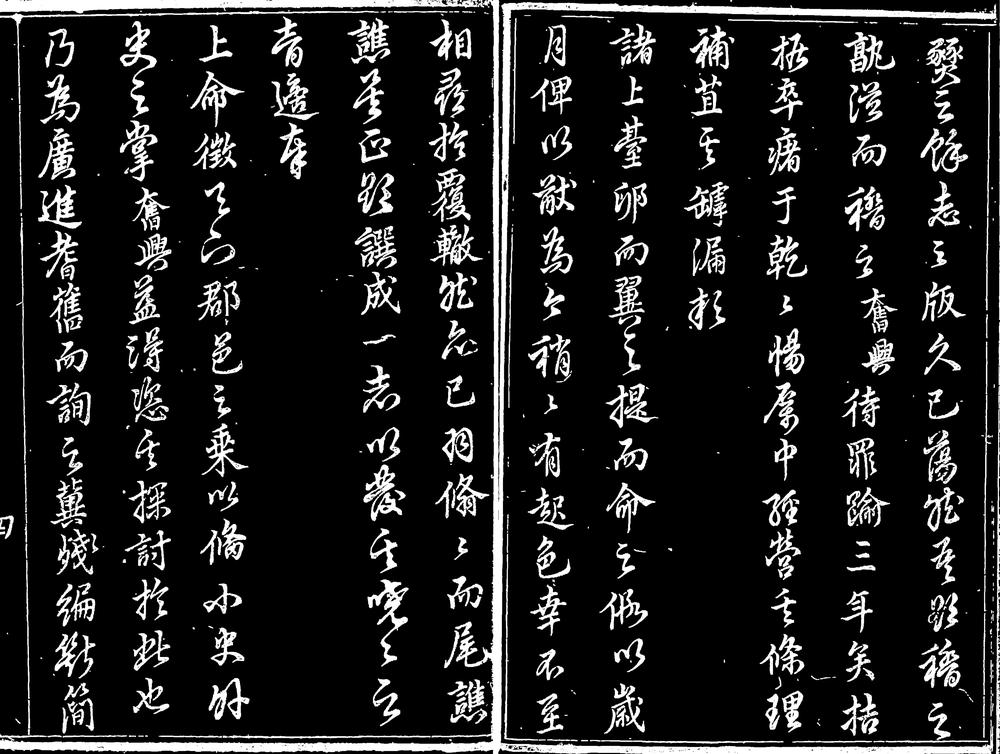 燹之餘志之版久已蕩然矣欲稽之
孰從而稽之奮興待罪踰三年矣拮
据卒瘏于乾乾惕厲中經營其條理
補苴其罅漏報
諸上臺卵而翼之提而命之假以歲
月俾以猷為今稍稍有起色幸不至
相尋於覆轍然亦已羽翛翛而尾譙
譙矣正欲譔成一志以發其嘵嘵之
音適奉
上命徵天下郡邑之乘以備小史外
史之掌奮興益得恣其探討於此也
乃為廣進耆舊而詢之蒐殘編斷簡
四